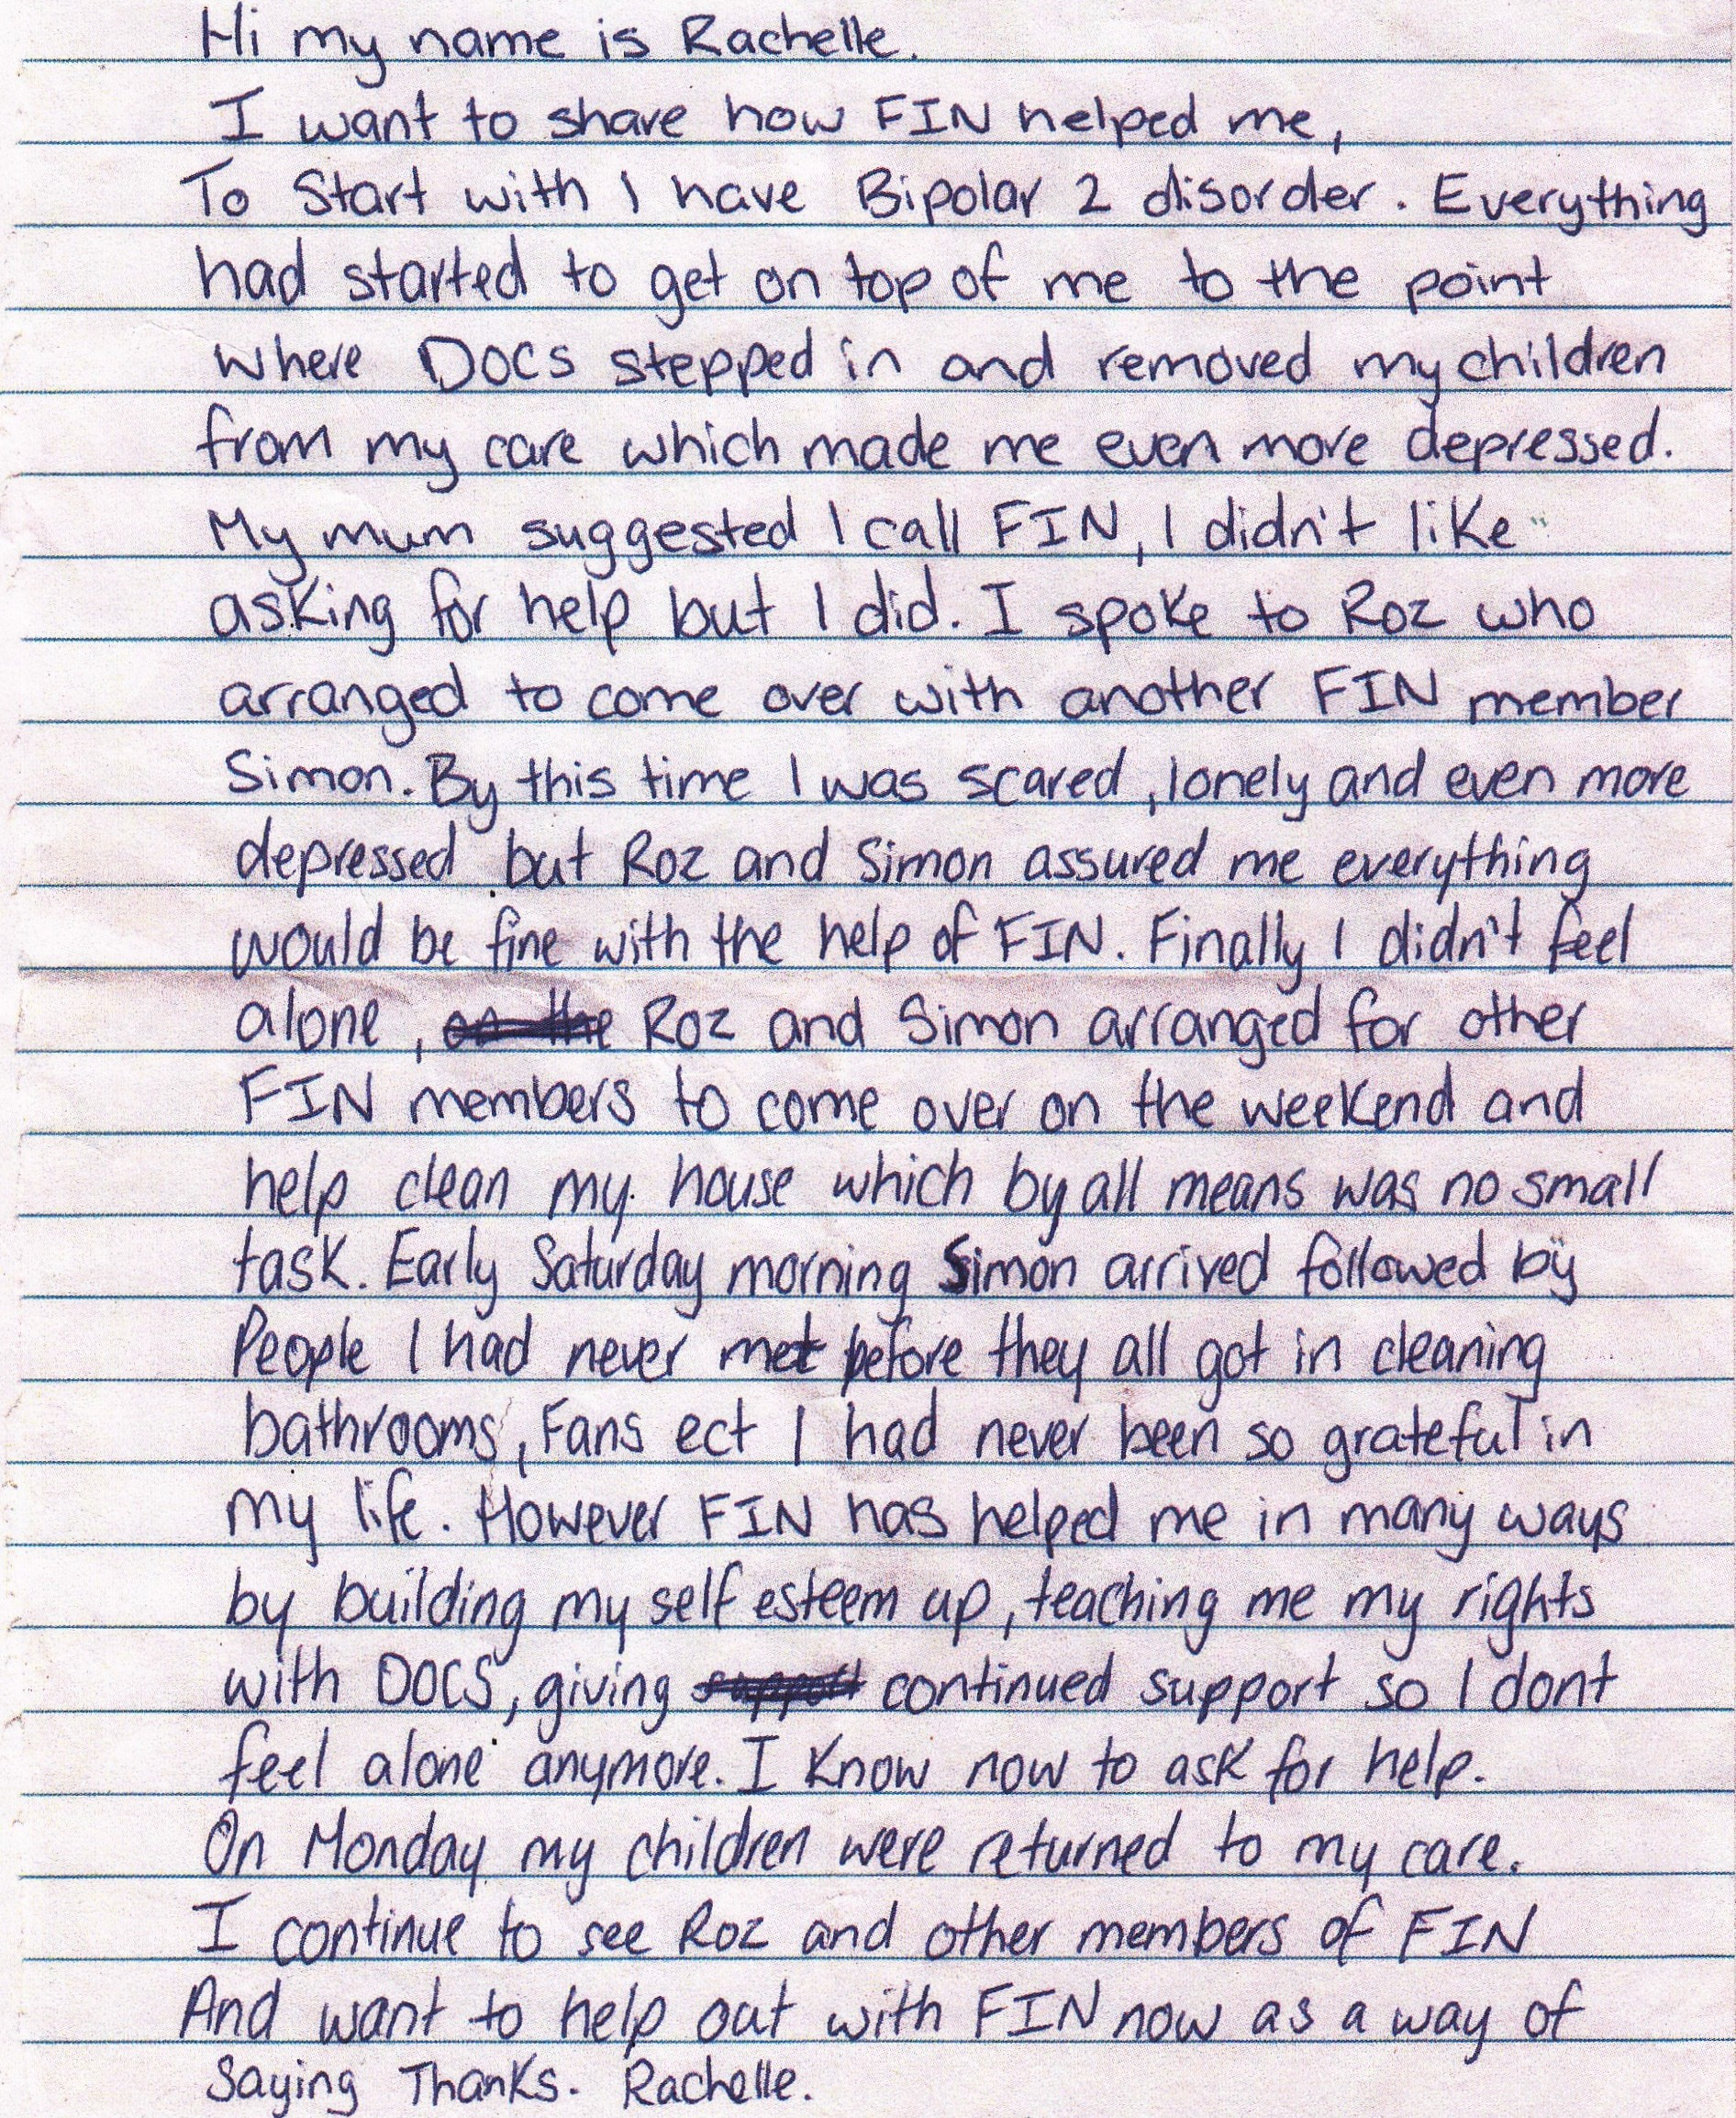 Hi my name is Rachelle.
I want to share how FIN helped me,
To Start with I have Bipolar 2 disorder. Everything
had started to get on top of me to the point
where DOCS stepped in and removed my children
from my care which made me even more depressed.
My mum suggested I call FIN, I didn't like
asking for help but I did. I spoke to Roz who
arranged to come over with another FIN member
Simon. By this time I was scared, lonely and even more
depressed but Roz and Simon assured me everything
would be fine with the help of FIN. Finally I didn't feel
alone, on the Roz and Simon arranged for other
FIN members to come over on the weekend and
help clean my house which by all means was no small
task. Early Saturday morning Simon arrived followed by
People I had never met before they all got in cleaning
bathrooms, Fans ect I had never been so grateful in
my life. However FIN has helped me in many ways
by building my self esteem up, teaching me my rights
with DOCS, giving support continued support so I dont
feel alone anymore. I know now to ask for help.
On Monday my children were returned to my care.
I continue to see Roz and other members of FIN
And want to help out with FIN now as a way of
Saying Thanks. Rachelle.